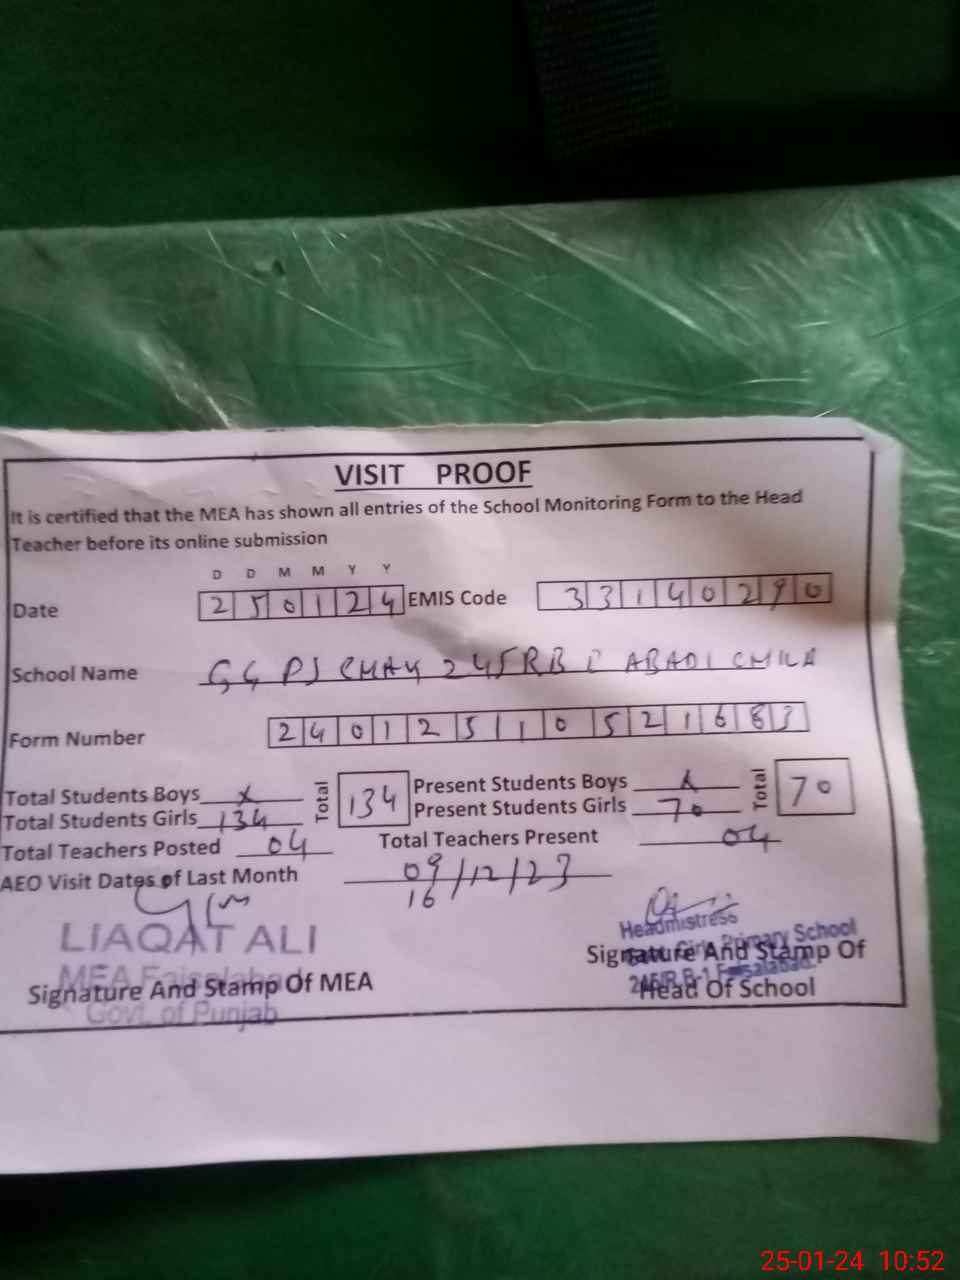 VISIT PROOF
It is certified that the MEA has shown all entries of the School Monitoring Form to the Head
Teacher before its online submission
D D M M Y Y
Date 250124 EMIS Code 33140290
School Name GGPS CHAK 245 RB ABADI CHILA
Form Number 240125110521683
Total Students Boys x Total 134 Present Students Boys x Total 70
Total Students Girls 134 Present Students Girls 70
Total Teachers Posted 04 Total Teachers Present 04
AEO Visit Dates of Last Month 09/12/23
16
LIAQAT ALI
MEA Faisalabad
Signature And Stamp Of MEA
Govt. of Punjab
Headmistress
Govt. Girls Primary School
Signature And Stamp Of
Faisalabad.
Head Of School
25-01-24 10:52